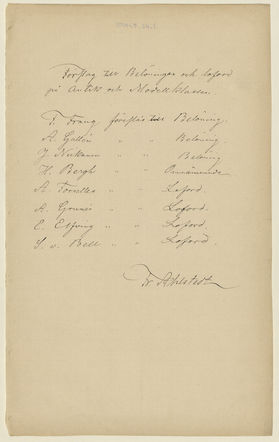 Förslag till Belöningar och loford
på Antik och Modellklassen.
F. Frang föreslås till Belöning.
A. Gallén " " Belöning
J. Kerkonen " " Belöning
H. Bergh " " Omnämnande
A. Tornelles " " Loford.
A. " " Loford.
E. Elfving " " Loford.
S. v. Bell " " Loford.
Fr Ahlstedt